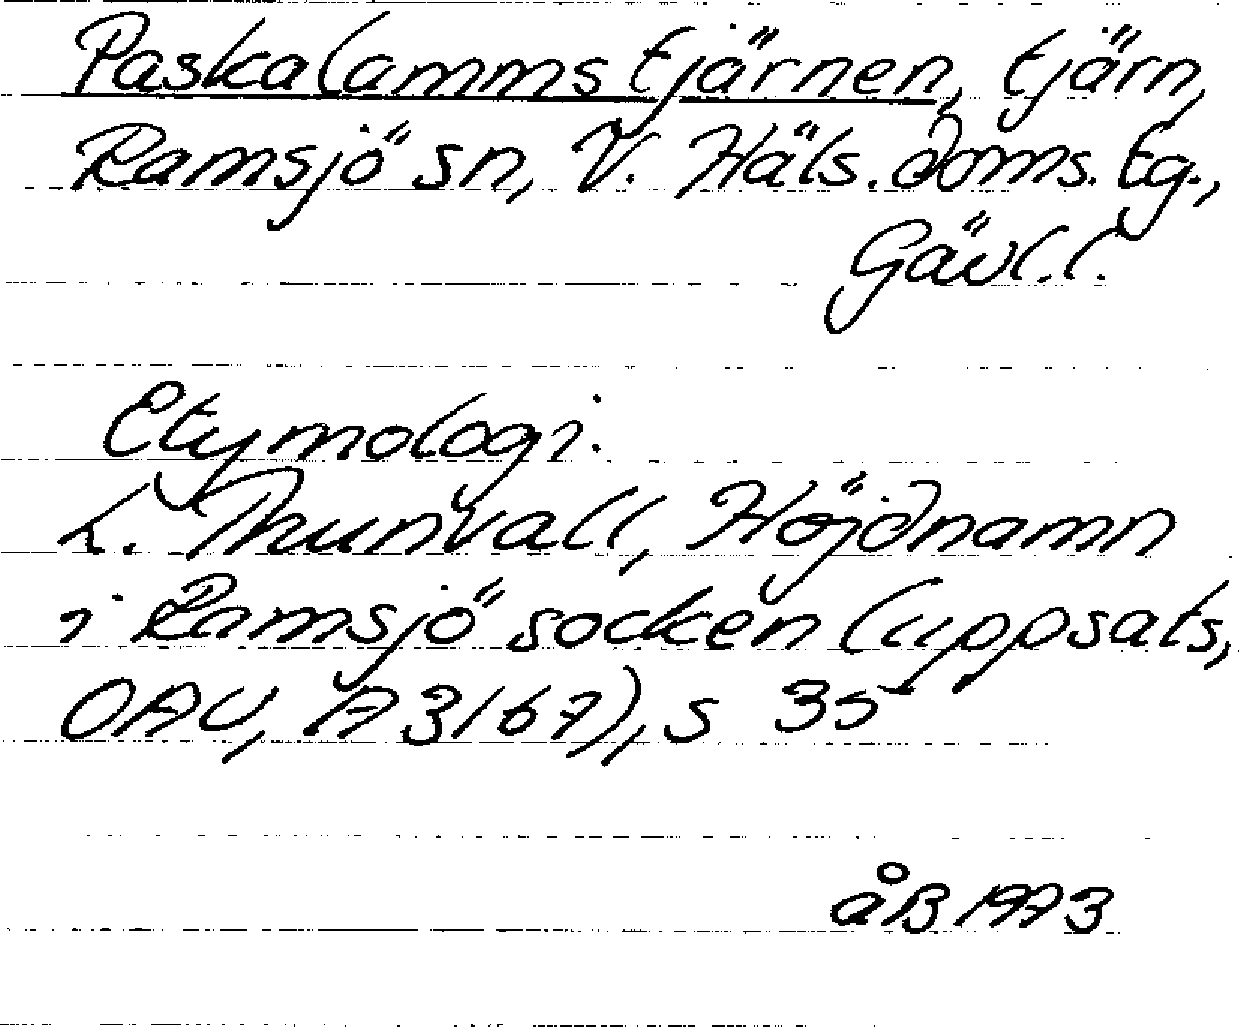 Paskalammstjärnen, tjärn,
Ramsjö sn, V. Häls. doms. tg.,
Gävl.l.
Etymologi.
L. Thunvall, Höjdnamn
i Ramsjö socken (uppsats,
OAU, A 3167), s 35
åB 1973